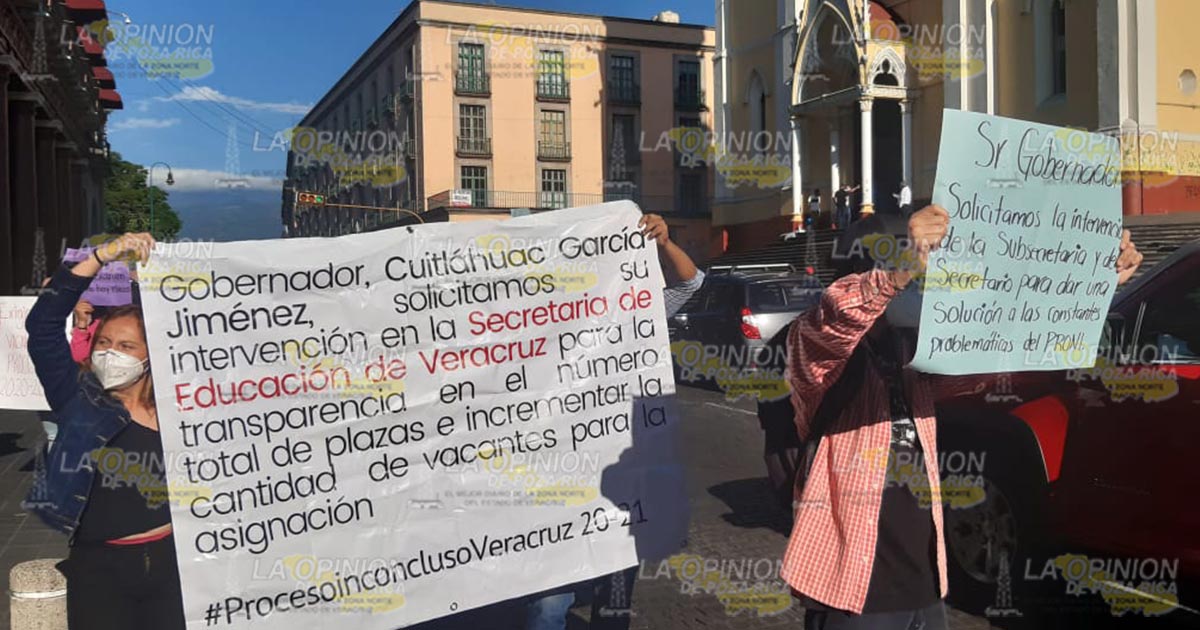 Gobernador, Cuitláhuac García
Jiménez, solicitamos su
intervención en la Secretaria de
Educación de Veracruz para la
transparencia en el número
total de plazas e incrementar la
cantidad de vacantes para la
asignación
#ProcesoinconclusoVeracruz 20-21
Sr Gobernador
Solicitamos la intervención
de la Subsecretaria y de
Secretario para dar una
Solución a las constantes
problemáticas del PRONI.
LA OPINION
DE POZA RICA
EL MEJOR DIARIO DE LA ZONA NORTE
DEL ESTADO DE VERACRUZ